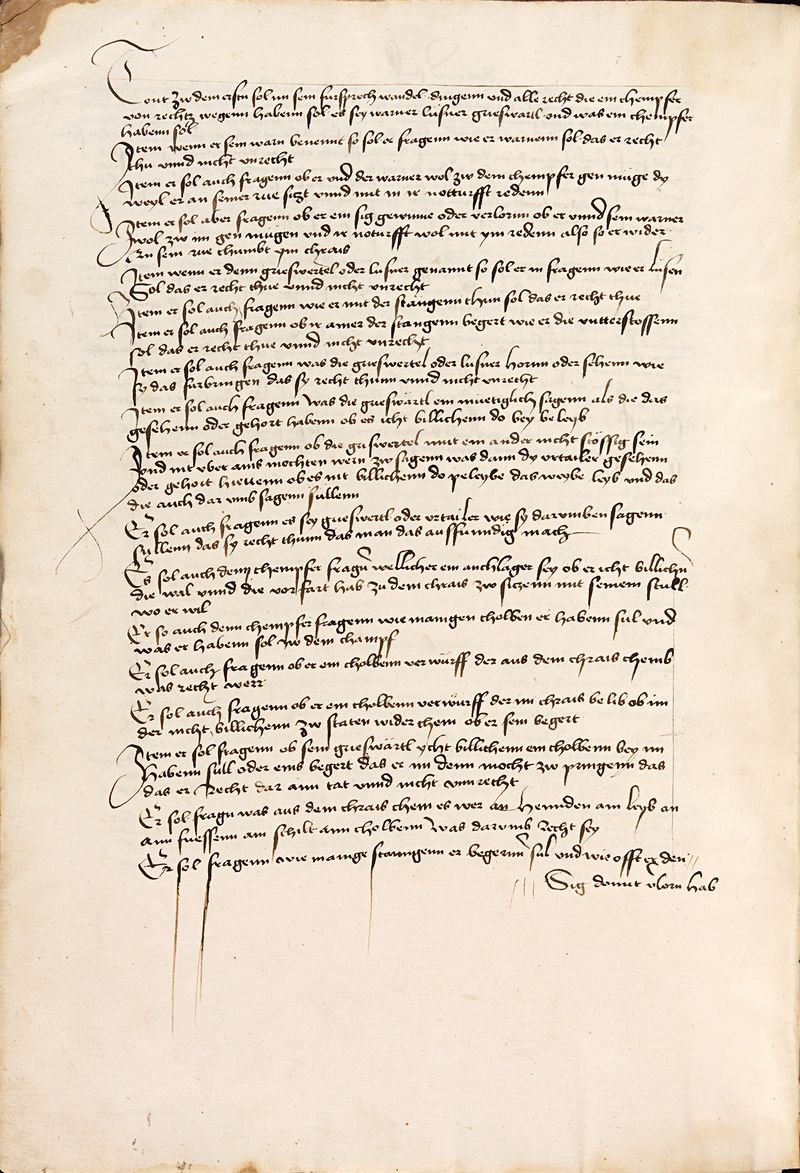 Tout zw dem ersten sol im sein fursprech wandel dingenn vnd alle recht die ein chempfer
von rechtz wegenn habenn sol es sey warner lusner grieswartl vnd was ein chempfer
habenn sol
Item wenn er sein warn benennt so sol er fragenn wie er warnenn sol das er recht
thu vnnd nicht vnrecht
Item er sol auch fragenn ob er vnd der warner wol zw dem chempfer gen muge dy
weyl er an seiner rue sitzt vnnd mit in ir notturfft redenn
Item er sol aber fragenn ob er ein sig gewinne oder verlornn ob er vnnd sein warner
wol zw im gen mugen vnd ir noturfft wol mit ym redenn also so er wider
in sein rue chumbt ym chrais
Item wenn er denn grieswertel oder lusner genannt so sol er in fragenn wie er lusen
Sol das er recht thue vnnd nicht vnrecht
Item er sol auch fragenn wie er mit der stangenn thun sol das er recht thue
Item er sol auch fragenn ob ir ainer der stangenn begert wie er die vntterstossenn
sol das er recht thue vnnd nicht vnrecht
Item er sol auch fragenn was die grieswertel oder lusner hornn oder sehenn wie
sy das furbringen das sy recht thunn vnnd nicht vnrecht
Item er sol auch fragenn was die grieswartl ein muetiglich sagenn als die das
gesehenn oder gehort habenn ob es icht billichenn do bey beleyb
Item er sol auch fragenn ob die griswertel mit ein ander nicht stossig sein
vnd nit vber ains mochten wern zw sagenn was dann dy vrtailer gesehenn
oder gehort hietenn ob es nit billichenn do peleybe das weybe leyb vnd das
die auch dar vmb sagenn sullenn
Er sol auch fragenn es sey grieswertl oder vrtailer wie sy darumben sagenn
sullenn das sy recht thunn das man das ausffundig mach
Es sol auch denn chempfer fragn wellicher ein anchlager sey ob er icht billichn
die wal vnnd die vor fart hab zu dem chrais zw siczenn mit seinem stull
wo er wil
Er so auch denn chempfer fragenn wie manigen cholben er habenn sul vnd
was er habenn sol zw dem champf
Er sol auch fragenn ob er ein cholbenn verwurff der aus dem chrais chemb
was recht werr
Er sol auch fragenn ob er ein cholbenn verwurff der im chrais be lib ob im
der nicht billichenn zw staten wider chem ob er sein begert
Item er sol fragenn ob sein grieswartl ycht billichenn ein cholbenn bey im
habenn sull oder eins begert das er im denn mocht zw pringenn das
das er Recht dar ann tat vnnd nicht vnnrecht
Er sol fragn was aus dem chrais chem es wer an hemnden am leyb an
ann fuessenn am schilt ann cholbenn was darumb Recht sey
Er sol fragenn wie mannge stanngenn er begernn sul vnd wie offt er den
Sig domit vlorn hab